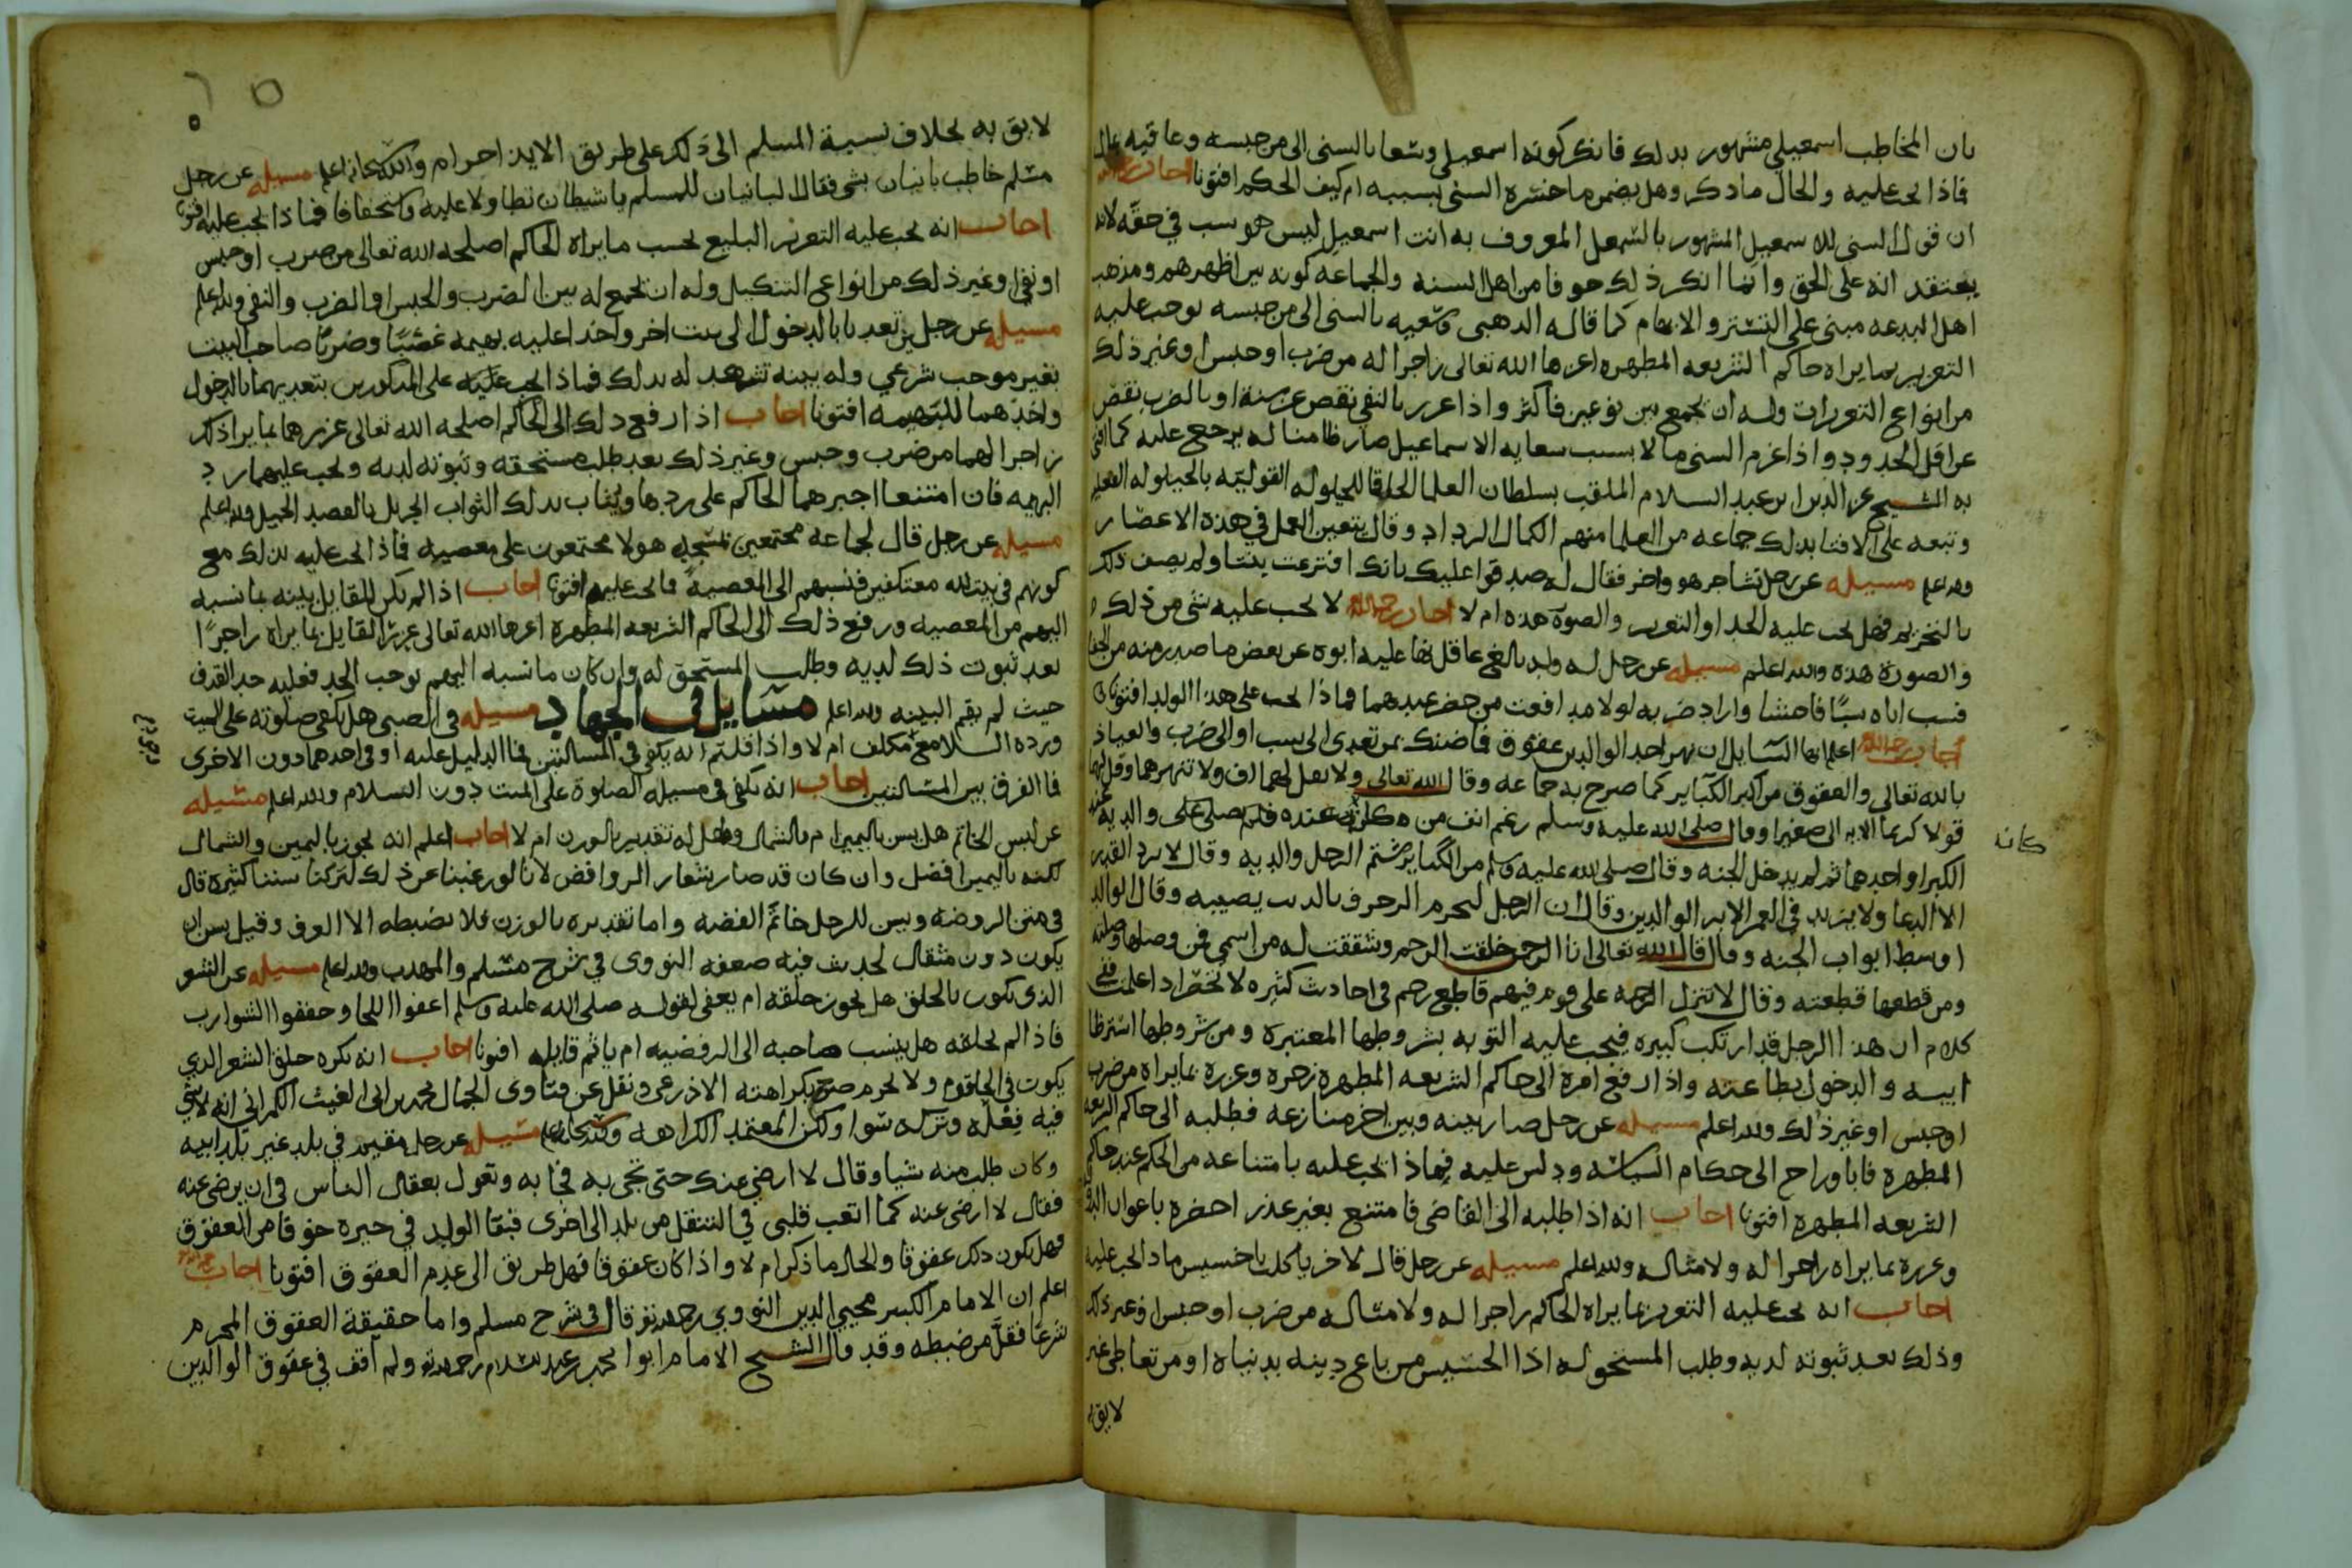 بان المخاطب اسمعيلي مشهور بدلك فانكر كونه اسمعيلي وسعا بالسنى الى من حبسه وعاقبه
فاذا يجب عليه والحال ما ذكر وهل يضمن ما خسره السنى بسببه ام كيف الحكم افتونا اجاب رحمه الله
ان قول السنى للاسمعيلي المشهور بالتسمعل المعروف به انت اسمعيلي ليس هو سب في حقه لانه
يعتقد انه على الحق وانما انكر ذلك خوفا من اهل السنه والجماعه كونه بين اظهرهم ومذهب
اهل البدعه مبنى على التستر والابهام كما قاله الذهبى وسعيه بالسنى الى من حبسه يوجب عليه
التعزير بما يراه حاكم الشريعه المطهره اعزها الله تعالى زاجرا له من ضرب او حبس او غير ذلك
من انواع التعزيرات وله ان يجمع بين نوعين فاكثر واذا عزر بالنفي نقص عن سنة او بالضرب نقص
عن اقل الحدود واذا غرم السنى مالا بسبب سعايه الاسماعيلى صار ظامنا له يرجع عليه كما افتى
به الشيخ عز الدين ابن عبد السلام الملقب بسلطان العلما الحاقا للحيلوله القوليه بالحيلوله الفعليه
وتبعه على الافتا بذلك جماعه من العلما منهم الكمال الرداد وقال يتعين العمل في هذه الاعصار
والله اعلم مسيله عن رجل تشاجر هو واخر فقال له صدقوا عليك بانك افترعت بنتا ولم يصف ذلك
بالتحريم فهل يجب عليه الحد او التعزير والصورة هذه ام لا اجاب رحمه الله لا يجب عليه شى من ذلك
والصورة هذه والله اعلم مسيله عن رجل له ولد بالغ عاقل نها عليه ابوه عن بعض ما صدر منه من الجفا
فسب اباه سبا فاحشا واراد ضربه لولا مدافعت من حضر عندهما فماذا يجب على هذا الولد افتونا
اجاب رحمه الله اعلم ايها السايل ان نهر احد الوالدين عقوق فما ضنك بمن تعدى الى سب او الى ضرب والعياذ
بالله تعالى والعقوق من اكبر الكباير كما صرح به جماعه وقال الله تعالى ولا تقل لهما اف ولا تنهرهما وقل لهما
قولا كريما الايه الى صغيرا وقال صلى الله عليه وسلم رغم انف من ادرك عنده والديه
كانه
الكبر او احدهما ثم لم يدخل الجنه وقال صلى الله عليه وسلم من الكباير شتم الرجل والديه وقال لا يرد القدر
الا الدعا ولا يزيد في العمر الا بر الوالدين وقال ان الرجل ليحرم الرزق بالذنب يصيبه وقال الوالد
اوسط ابواب الجنه وقال قال الله تعالى انا الرحمن خلقت الرحم وشققت له من اسمي فمن وصلها وصلته
ومن قطعها قطعته وقال لا تنزل الرحمه على قوم فيهم قاطع رحم في احاديث كثيره لا تحصر اذا علمت
كلام ان هذا الرجل قد ارتكب كبيره فيجب عليه التوبه بشروطها المعتبره ومن شروطها استرظا
ابيه والدخول بطاعته واذا رفع امره الى حاكم الشريعه المطهره زجره وعزره بما يراه من ضرب
او حبس او غير ذلك والله اعلم مسيله عن رجل صار بينه وبين اخر منازعه فطلبه الى حاكم الشريعه
المطهره فابا وراح الى حكام السياسه ودلس عليه فماذا يجب عليه بامتناعه من الحكم عند حاكم
الشريعه المطهره افتونا اجاب انه اذا طلبه الى القاضى فامتنع بغير عذر احضره باعوان
وعزره بما يراه زاجرا له ولامثاله والله اعلم مسيله عن رجل قال لاخر يا كلب يا خسيس ماذا يجب عليه
اجاب انه يجب عليه التعزير بما يراه الحاكم زاجرا له ولامثاله من ضرب او حبس او غير ذلك
وذلك بعد ثبوته لديه وطلب المستحق له اذ الخسيس من باع دينه بدنياه او من تعاطى غير
لايق
لايق به بخلاف نسبة المسلم الى ذلك على طريق الايذا حرام والله سبحانه اعلم مسيله عن رجل
مسلم خاطب بانيان بشى فقال البانيان للمسلم يا شيطان تطاولا عليه واستخفافا فماذا يجب عليه افتونا
اجاب انه يجب عليه التعزير البليغ بحسب ما يراه الحاكم اصلحه الله تعالى من ضرب او حبس
او نفي او غير ذلك من انواع التنكيل وله ان يجمع له بين الضرب والحبس او الضرب والنفي والله اعلم
مسيله عن رجلين تعديا بالدخول الى بيت اخر واخذا عليه بهيمه غصبا وضربا صاحب البيت
بغير موجب شرعي وله بينه تشهد له بذلك فماذا يجب عليه على المذكورين بتعديهما بالدخول
واخذهما للبهيمه افتونا اجاب اذا رفع ذلك الى الحاكم اصلحه الله تعالى عزرهما بما يراه
زاجرا لهما من ضرب وحبس وغير ذلك بعد طلب مستحقه وثبوته لديه ويجب عليهما رد
البهيمه فان امتنعا اجبرهما الحاكم على ردها ويثاب بذلك الثواب الجزيل بالقصد الجميل والله اعلم
مسيله عن رجل قال لجماعه مجتمعين بمسجد هولا مجتمعون على معصيه فماذا يجب عليه بذلك مع
كونهم في بيت الله معتكفين فنسبهم الى المعصية فما يجب عليه افتونا اجاب اذا لم يكن للقايل بينه بما نسبه
اليهم من المعصيه ورفع ذلك الى الحاكم الشريعه المطهرة اعزها الله تعالى عزر القايل بما يراه زاجرا
بعد ثبوت ذلك لديه وطلب المستحق له وان كان ما نسبه اليهم يوجب الحد فعليه حد القذف
حيث لم يقم البينه والله اعلم مسايل في الجهاد مسيله في الصبى هل تكفى صلوته على الميت
ورده السلام مع مكلف ام لا واذا قلتم انه يكفي في المسالتين فما الدليل عليه او في احدهما دون الاخرى
فما الفرق بين المسالتين اجاب انه تكفى في مسيله الصلوة على الميت دون السلام والله اعلم مسيله
عن لبس الخاتم هل يسن باليمين ام بالشمال وهل له تقدير بالوزن ام لا اجاب اعلم انه يجوز باليمين والشمال
لكنه باليمين افضل وان كان قد صار شعار الروافض لانا لو رغبنا عن ذلك لتركنا سننا كثيره قال
في متن الروضه ويسن للرجل خاتم الفضه واما تقديره بالوزن فلا يضبطه الا العرف وقيل يسن ان
يكون دون مثقال لحديث فيه ضعفه النووى في شرح مسلم والمهذب والله اعلم مسيله عن الشعر
الذى يكون بالحلق هل يجوز حلقه ام يعفى لقوله صلى الله عليه وسلم اعفوا اللحا وحففوا الشوارب
فاذا لم يحلقه هل ينسب صاحبه الى الرفضيه ام ياثم قايله افتونا اجاب انه يكره حلق الشعر الذي
يكون في الحلقوم ولا يحرم صرح بكراهته الاذرعى ونقل عن فتاوى الجمال محمد بن ابى الغيث الكمرانى انه
فيه فعله وتركه سوا ولكن المعتمد الكراهه والله سبحانه اعلم مسيله عن رجل مقيم في بلد غير بلد ابيه
وكان طلب منه شيا وقال لا ارضى عنك حتى تجى به فجا به وتعول بعقال الناس في ان يرضى عنه
فقال لا ارضى عنه كما اتعب قلبى في التنقل من بلد الى اخرى فبقا الولد في حيره خوفا من العقوق
فهل يكون ذلك عقوقا والحال ما ذكر ام لا واذا كان عقوقا فهل طريق الى عدم العقوق افتونا اجاب رحمه الله
اعلم ان الامام الكبير محيي الدين النووي رحمه الله قال في شرح مسلم واما حقيقة العقوق المحرم
شرعا فقل من ضبطه وقد قال الشيخ الامام ابو محمد بن عبد السلام رحمه الله ولم اقف في عقوق الوالدين